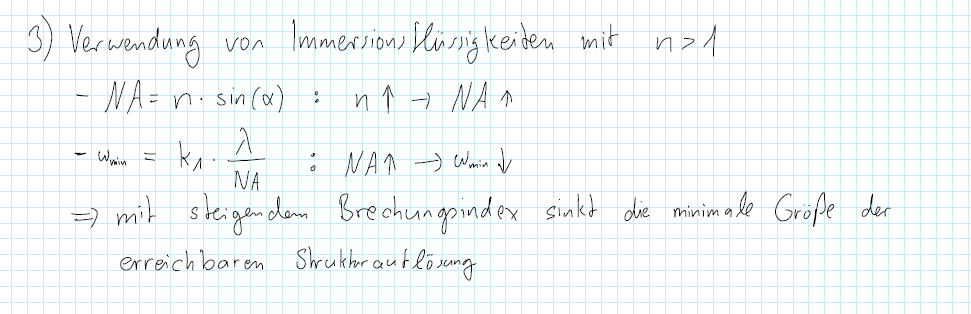 3) Verwendung von Immersionsflüssigkeiten mit n > 1
- NA = n · sin(α) : n ↑ → NA ↑
- w_min = k_1 · λ/NA : NA ↑ → w_min ↓
=> mit steigendem Brechungsindex sinkt die minimale Größe der
erreichbaren Strukturauflösung